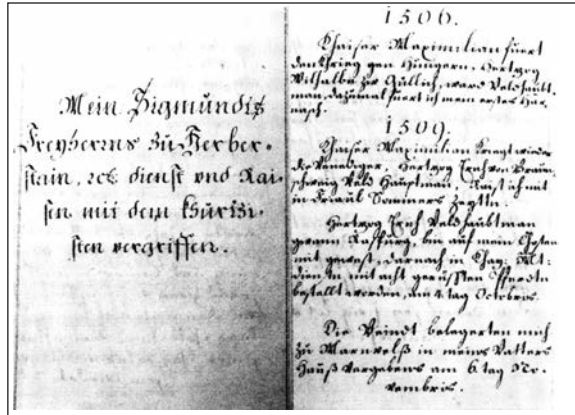 Mein Sigmundts
Freyherrns zu Herber-
stain, etc dienst vnd Rai-
sen mit dem khürtzi-
sten vergriffen.
1506.
Khaiser Maximilian fuert
den khrieg gen Hungern, Hertzog
Wilhalbm zu Gülich, ward Veldhaubt-
man, dazumal fuert ich mein ersten Har-
nasch.
1509.
Khaiser Maximilian kriegt wieder
die Venediger, Hertzog Erich von Braun-
schweig Veld Hauptman, Raist ich mit
in Friaul Sommers Zeytten.
Hertzog Erich Veldhaubtman
gewann Raspurg, bin auf mein Chosten
mit gewest, darnach in Khay: Mt:
dienst mit acht gerussten Pfferdtn
bestellt worden, am 4. tag Octobris.
Die Veindt belegerten mich
zu Marnvelß in meines Vatters
Hauß vergebens am 6. tag No-
vembris.